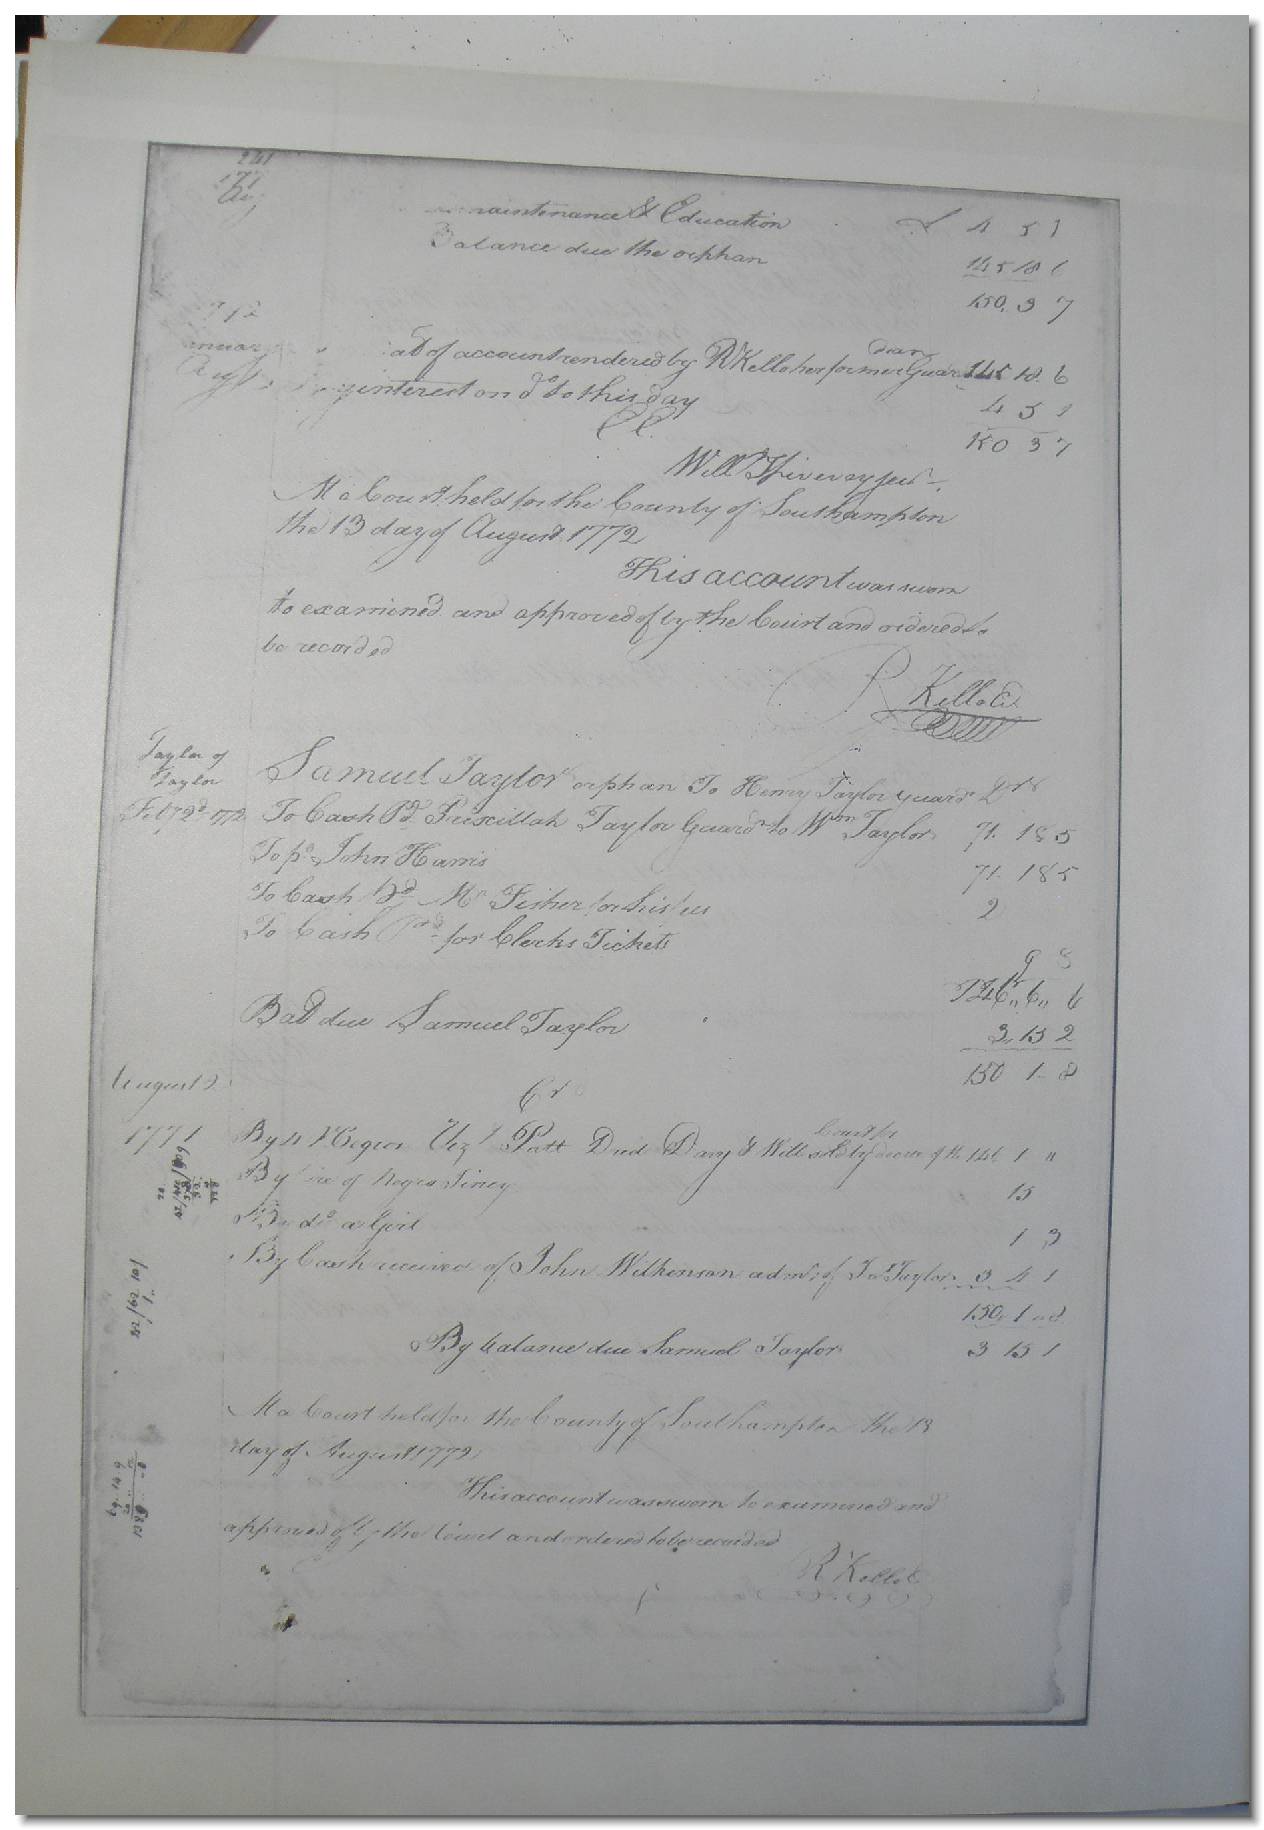 241
171
maintenance & Education £ 4 5 1
Balance due the orphan 145 18 6
150. 3 7
772
Bal of account rendered by R Kello her former Guardian 145 18. 6
August By interest on do to this day 4 5 1
EE. 150 3 7
Will
At a Court held for the County of Southampton
the 13 day of August 1772
This account was sworn
to examined and approved of by the Court and ordered to
be recorded
R Kello
Taylor of
Taylor
Samuel Taylor orphan To Henry Taylor guardn Dr
Feby 2d 1772 To Cash Pd Priscillah Taylor Guardn to Wm Taylor 71. 18 5
To po John Harris 71. 18 5
To Cash Pd Mr Fisher for his fees 2
To Cash Pd for Clerks Tickets 9 8
146,, 6,, 6
Bal due Samuel Taylor 3,, 15 2
150 1- 8
August
Cr
1771 By 4 Negroes Vizt Patt Dred Davy & Will sold by decree of the Court for 146 1 "
By hire of Negro 15
By do a Girl 1 3
By Cash received of John Wilkinson admr of Taylor 3 4 1
150,, 1 - 8
By balance due Samuel Taylor 3 15 1
At a Court held for the County of Southampton the 13
day of August 1772
This account was sworn to examined and
approved of by the Court and ordered to be recorded
R Kello